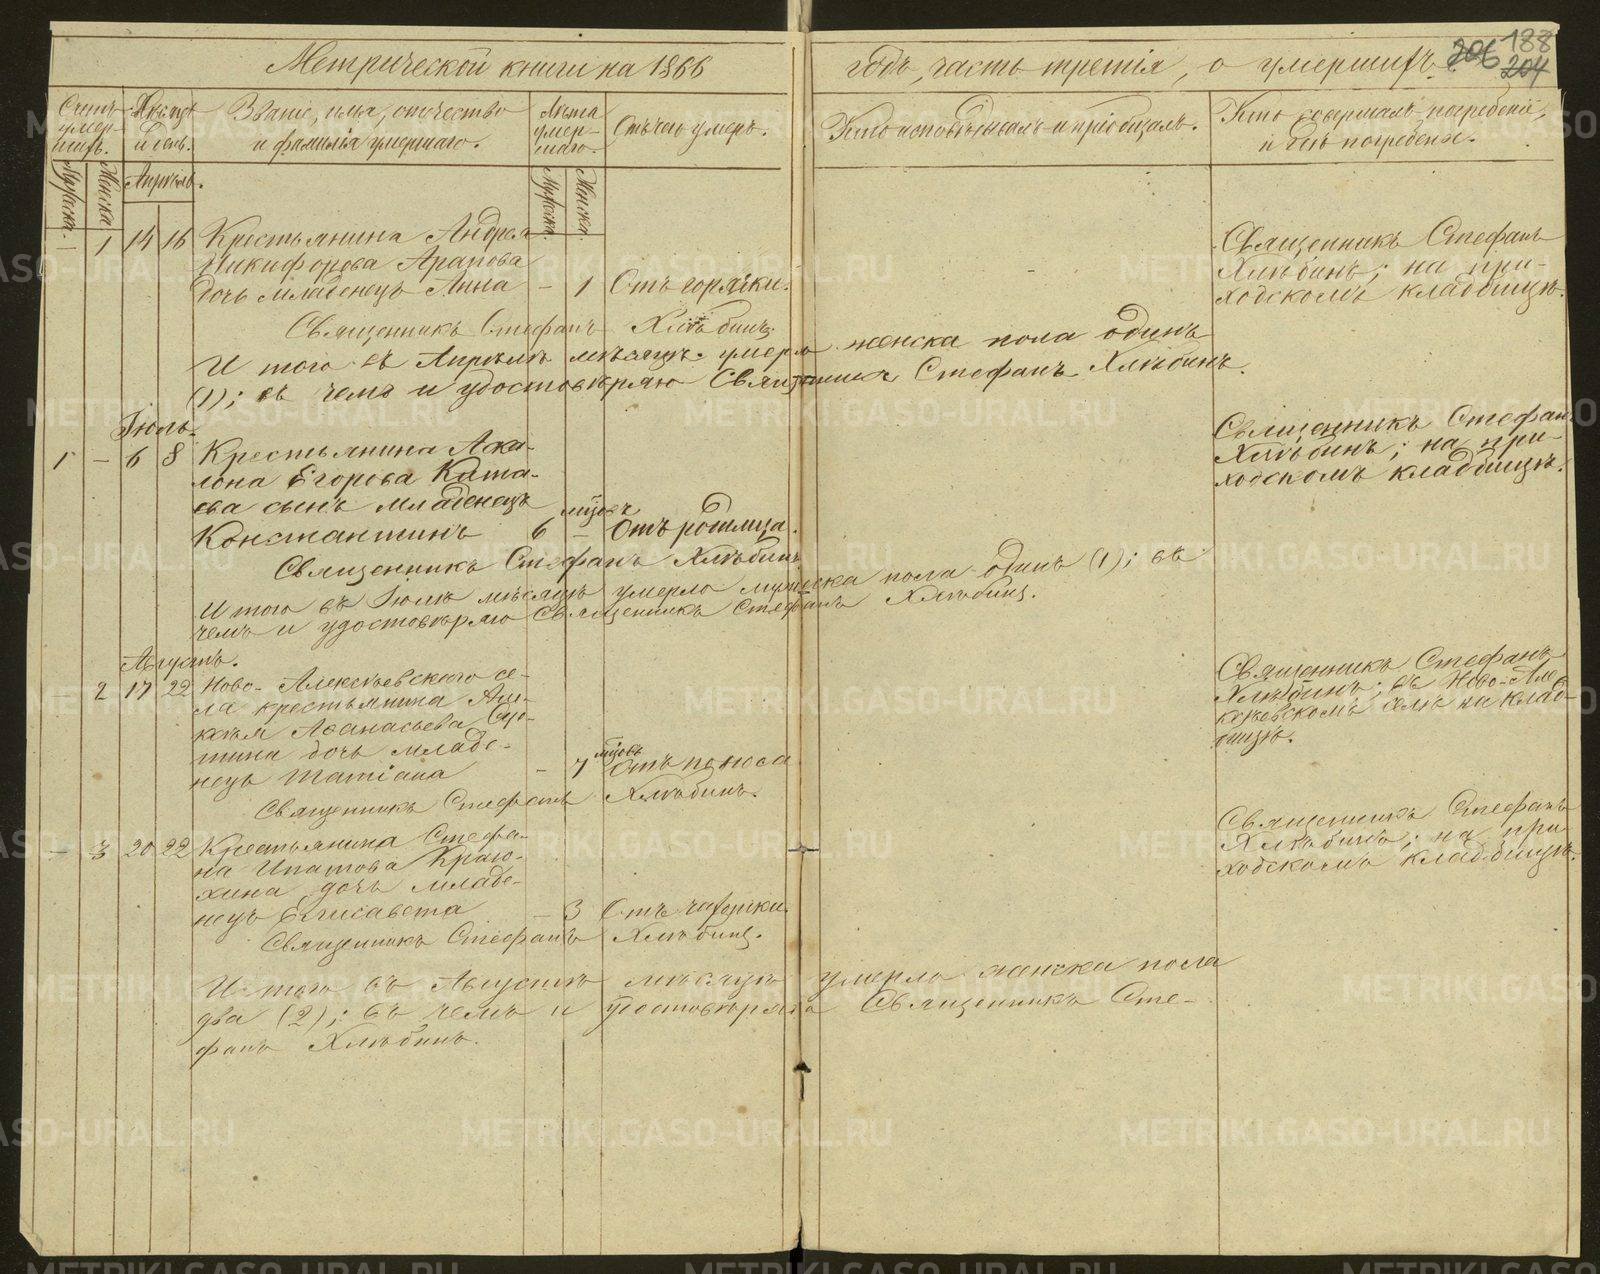 188
206 204
Метрической книги на 1866 годъ, часть третія, о умершихъ.
Счетъ умер-шихъ.
Мѣсяцъ и день.
Званіе, имя, отчество и фамилія умершаго.
Лѣта умер-шаго.
Отъ чего умеръ.
Кто исповѣдывалъ и пріобщалъ.
Кто совершалъ погребеніе, и гдѣ погребенъ.
Мужеска.
Женска.
Апрѣль.
Мужеска.
Женска.
– 1 14 16 Крестьянина Андрея
Никифорова Арапова
дочь младенецъ Анна – 1 Отъ горячки.
Священникъ Стефанъ
Хлѣбинъ; на при-
ходскомъ кладбищѣ.
Священникъ Стефанъ Хлѣбинъ.
И того въ Апрѣлѣ мѣсяцѣ умерло женска пола одинъ
(1); въ чемъ и удостовѣряю Священникъ Стефанъ Хлѣбинъ.
Іюль.
1 – 6 8 Крестьянина
Егорова
сынъ младенецъ
Константинъ 6 мѣсѣ – Отъ родимца.
Священникъ Стефанъ
Хлѣбинъ; на при-
ходскомъ кладбищѣ.
Священникъ Стефанъ Хлѣбинъ
И того въ Іюлѣ мѣсяцѣ умерло мужеска пола одинъ (1); въ
чемъ и удостовѣряю Священникъ Стефанъ Хлѣбинъ.
Августъ.
– 2 17 22 Ново-Алексѣевскаго се-
ла крестьянина Але-
ксѣя Аѳанасьева
дочь младе-
нецъ Татіана – 7 Отъ поноса
Священникъ Стефанъ
Хлѣбинъ; въ Ново-Але-
ксѣевскомъ селѣ на клад-
бищѣ.
Священникъ Стефанъ Хлѣбинъ.
– 3 20 22 Крестьянина Стефа-
на Ипатова Краю-
хина дочь младе-
нецъ Елисавета – 3 Отъ чахотки.
Священникъ Стефанъ
Хлѣбинъ; на при-
ходскомъ кладбищѣ.
Священникъ Стефанъ Хлѣбинъ.
И того въ Августѣ мѣсяцѣ умерло женска пола
два (2); въ чемъ и удостовѣряю Священникъ Сте-
фанъ Хлѣбинъ.
METRIKI.GASO-URAL.RU